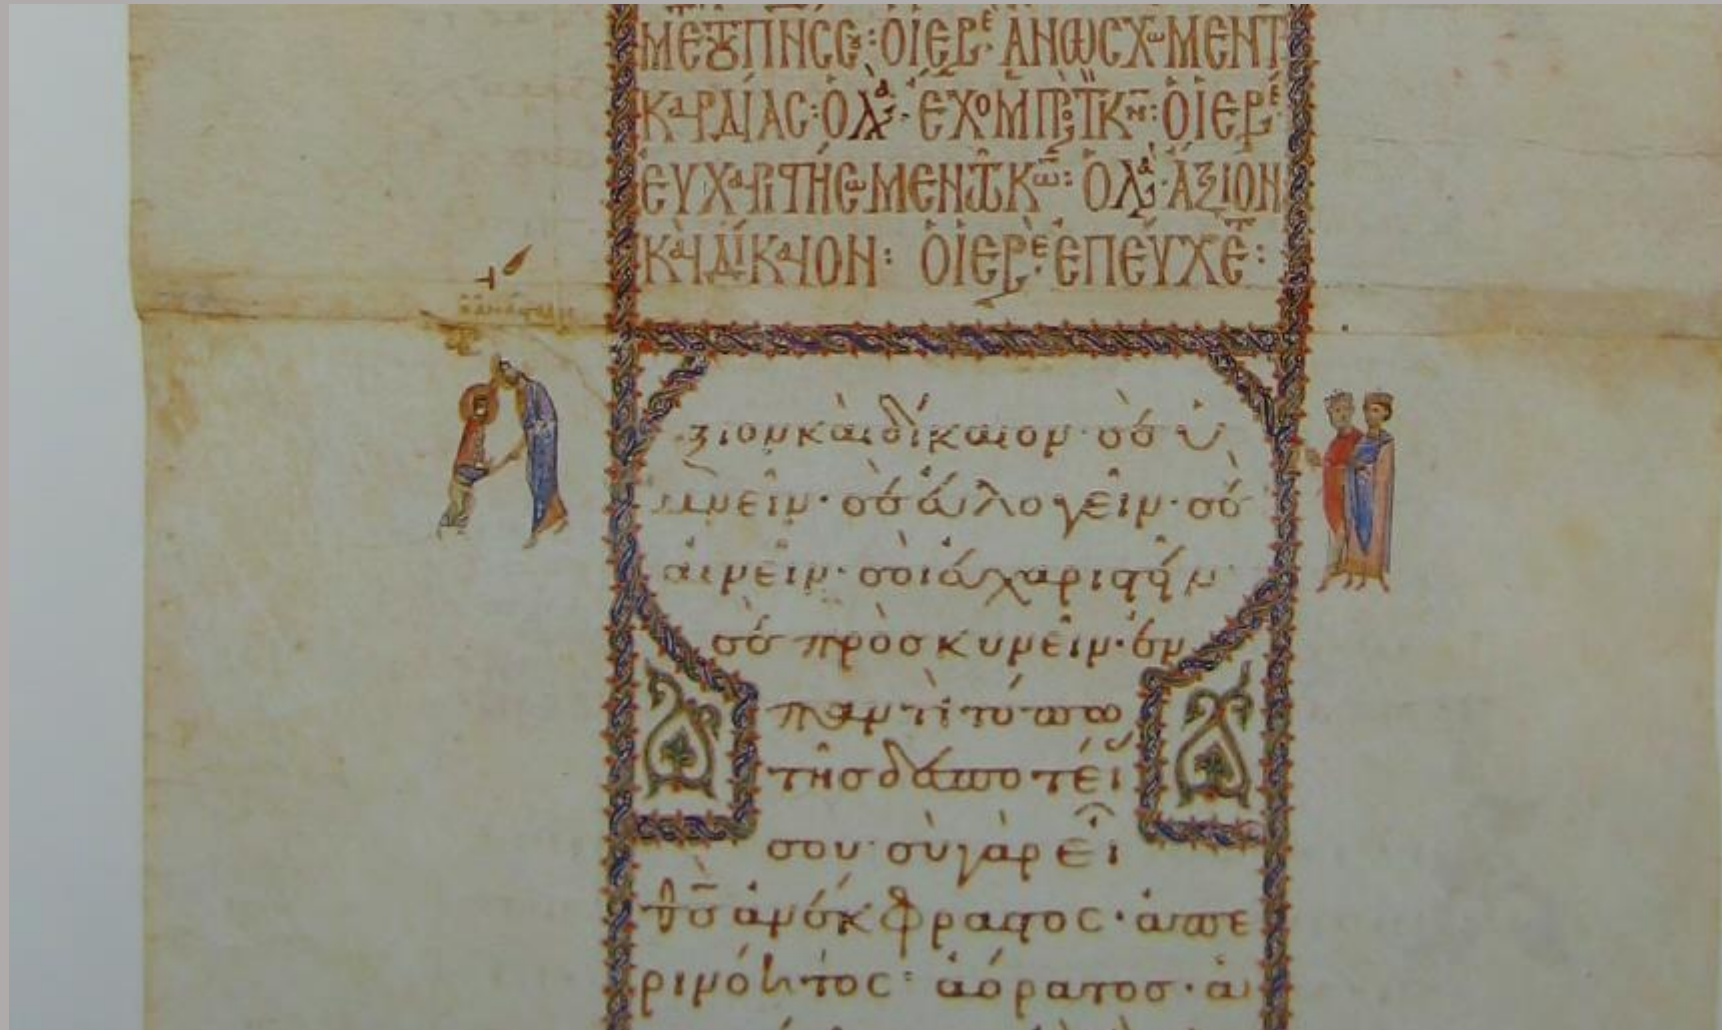 ΚΑΡΔΙΑΣ: Ὁ ΛΑ· ΕΧΟΜ ΠΡ Τ ΚΝ: Ὁ ΙΕΡΕ
ΕΥΧΑΡΙΣΤΗΣΩΜΕΝ Τ ΚΩ: Ὁ ΛΑ· ΑΞΙΟΝ
ΚΑΙ ΔΙΚΑΙΟΝ: Ὁ ΙΕΡΕ· ΕΠΕΥΧΕΤ:
ξιον καὶ δίκαιον· σὲ ὑ
μνεῖν· σὲ εὐλογεῖν· σὲ
αἰνεῖν· σοὶ εὐχαριστεῖν·
σὲ προσκυνεῖν· ἐν
παντὶ τόπω
τῆς δεσποτεί
σου· σὺ γὰρ εἶ
θς ἀνέκφραστος· ἀπε
ρινόητος· ἀόρατος· ἀ